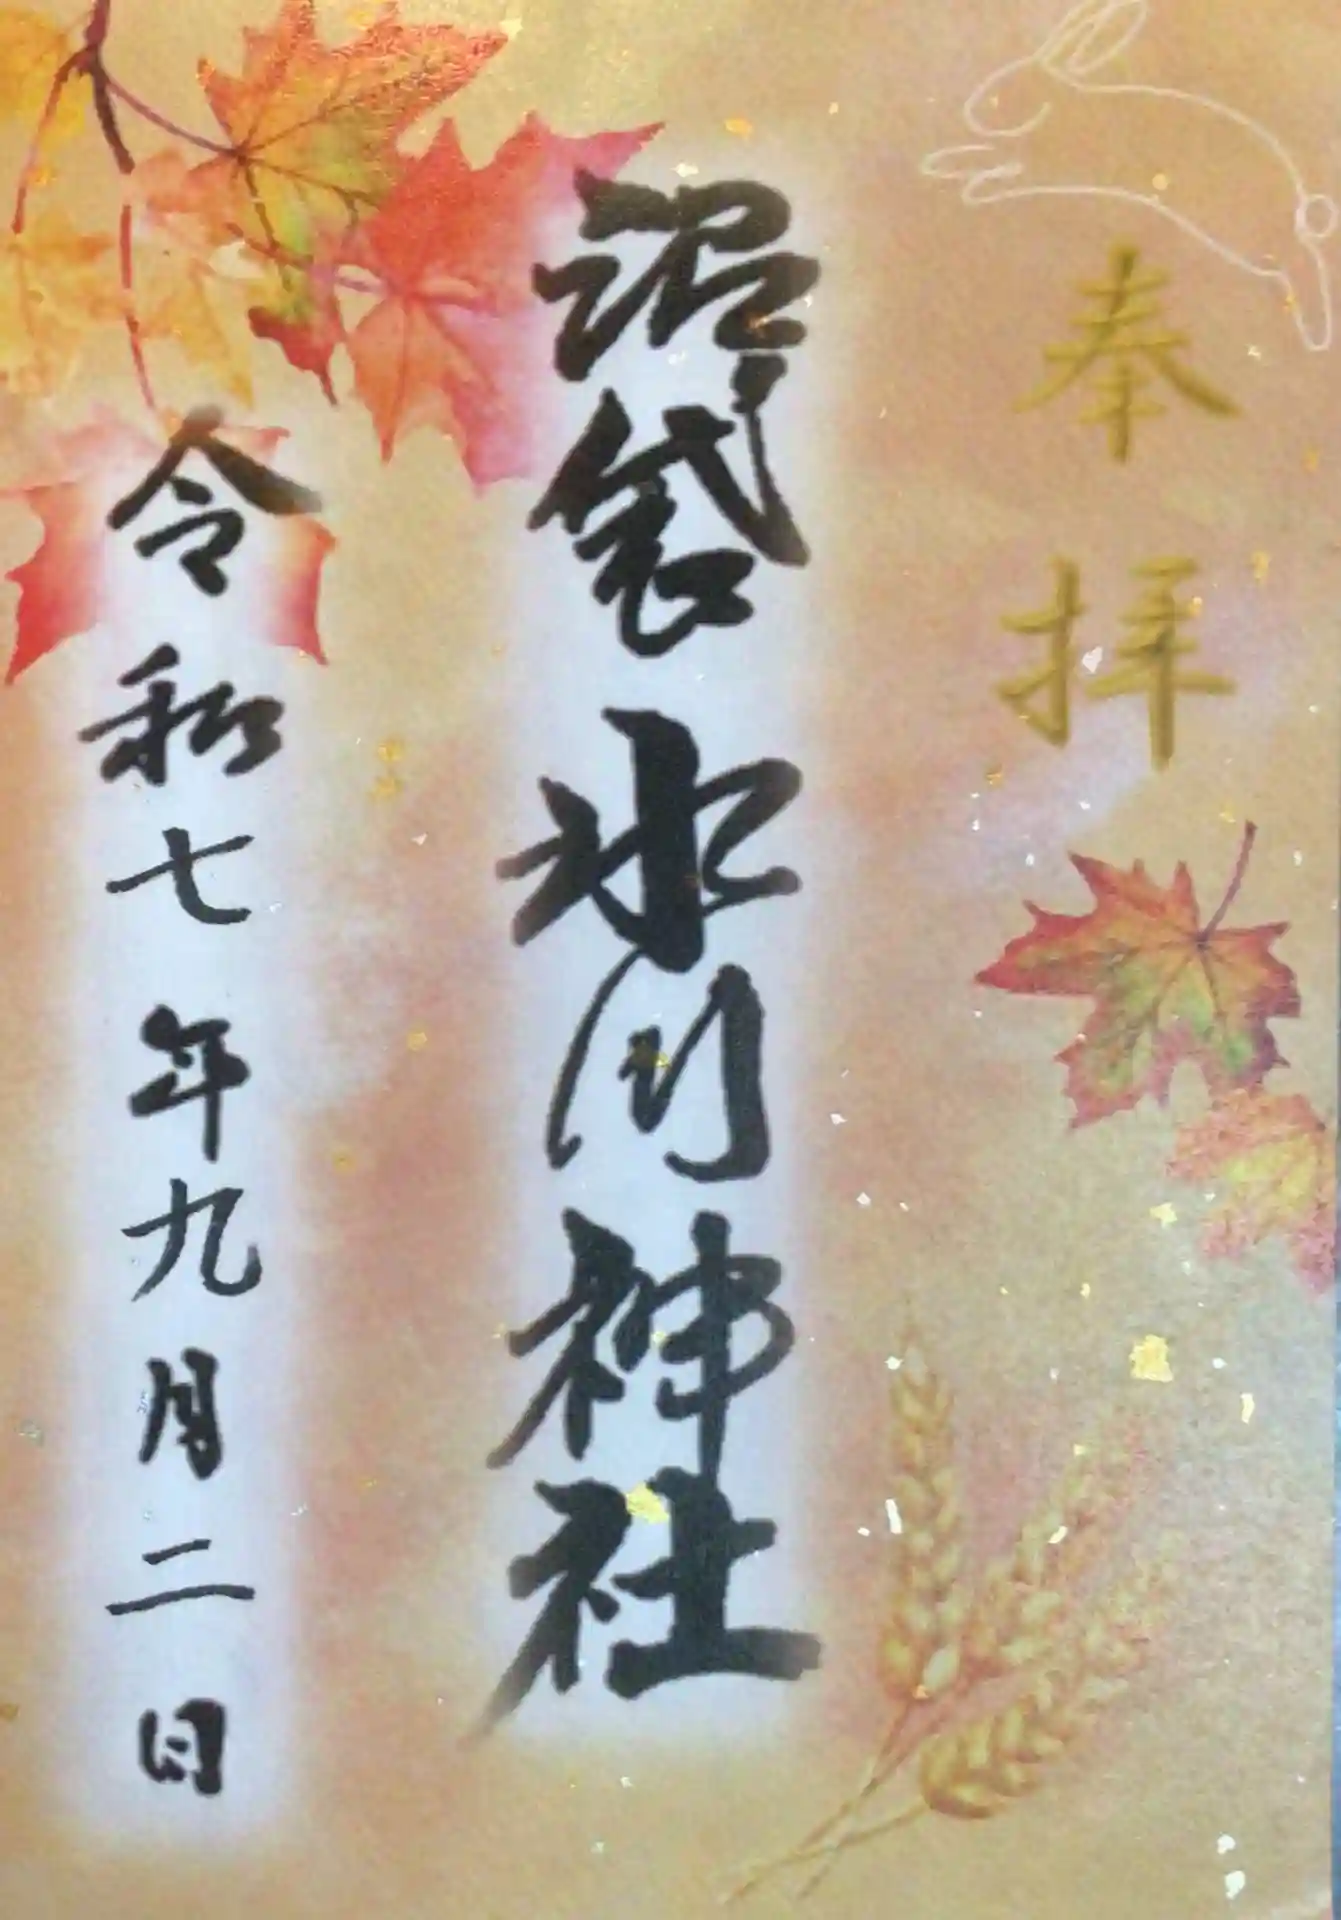 奉拝
沼袋氷川神社
令和七年九月二日